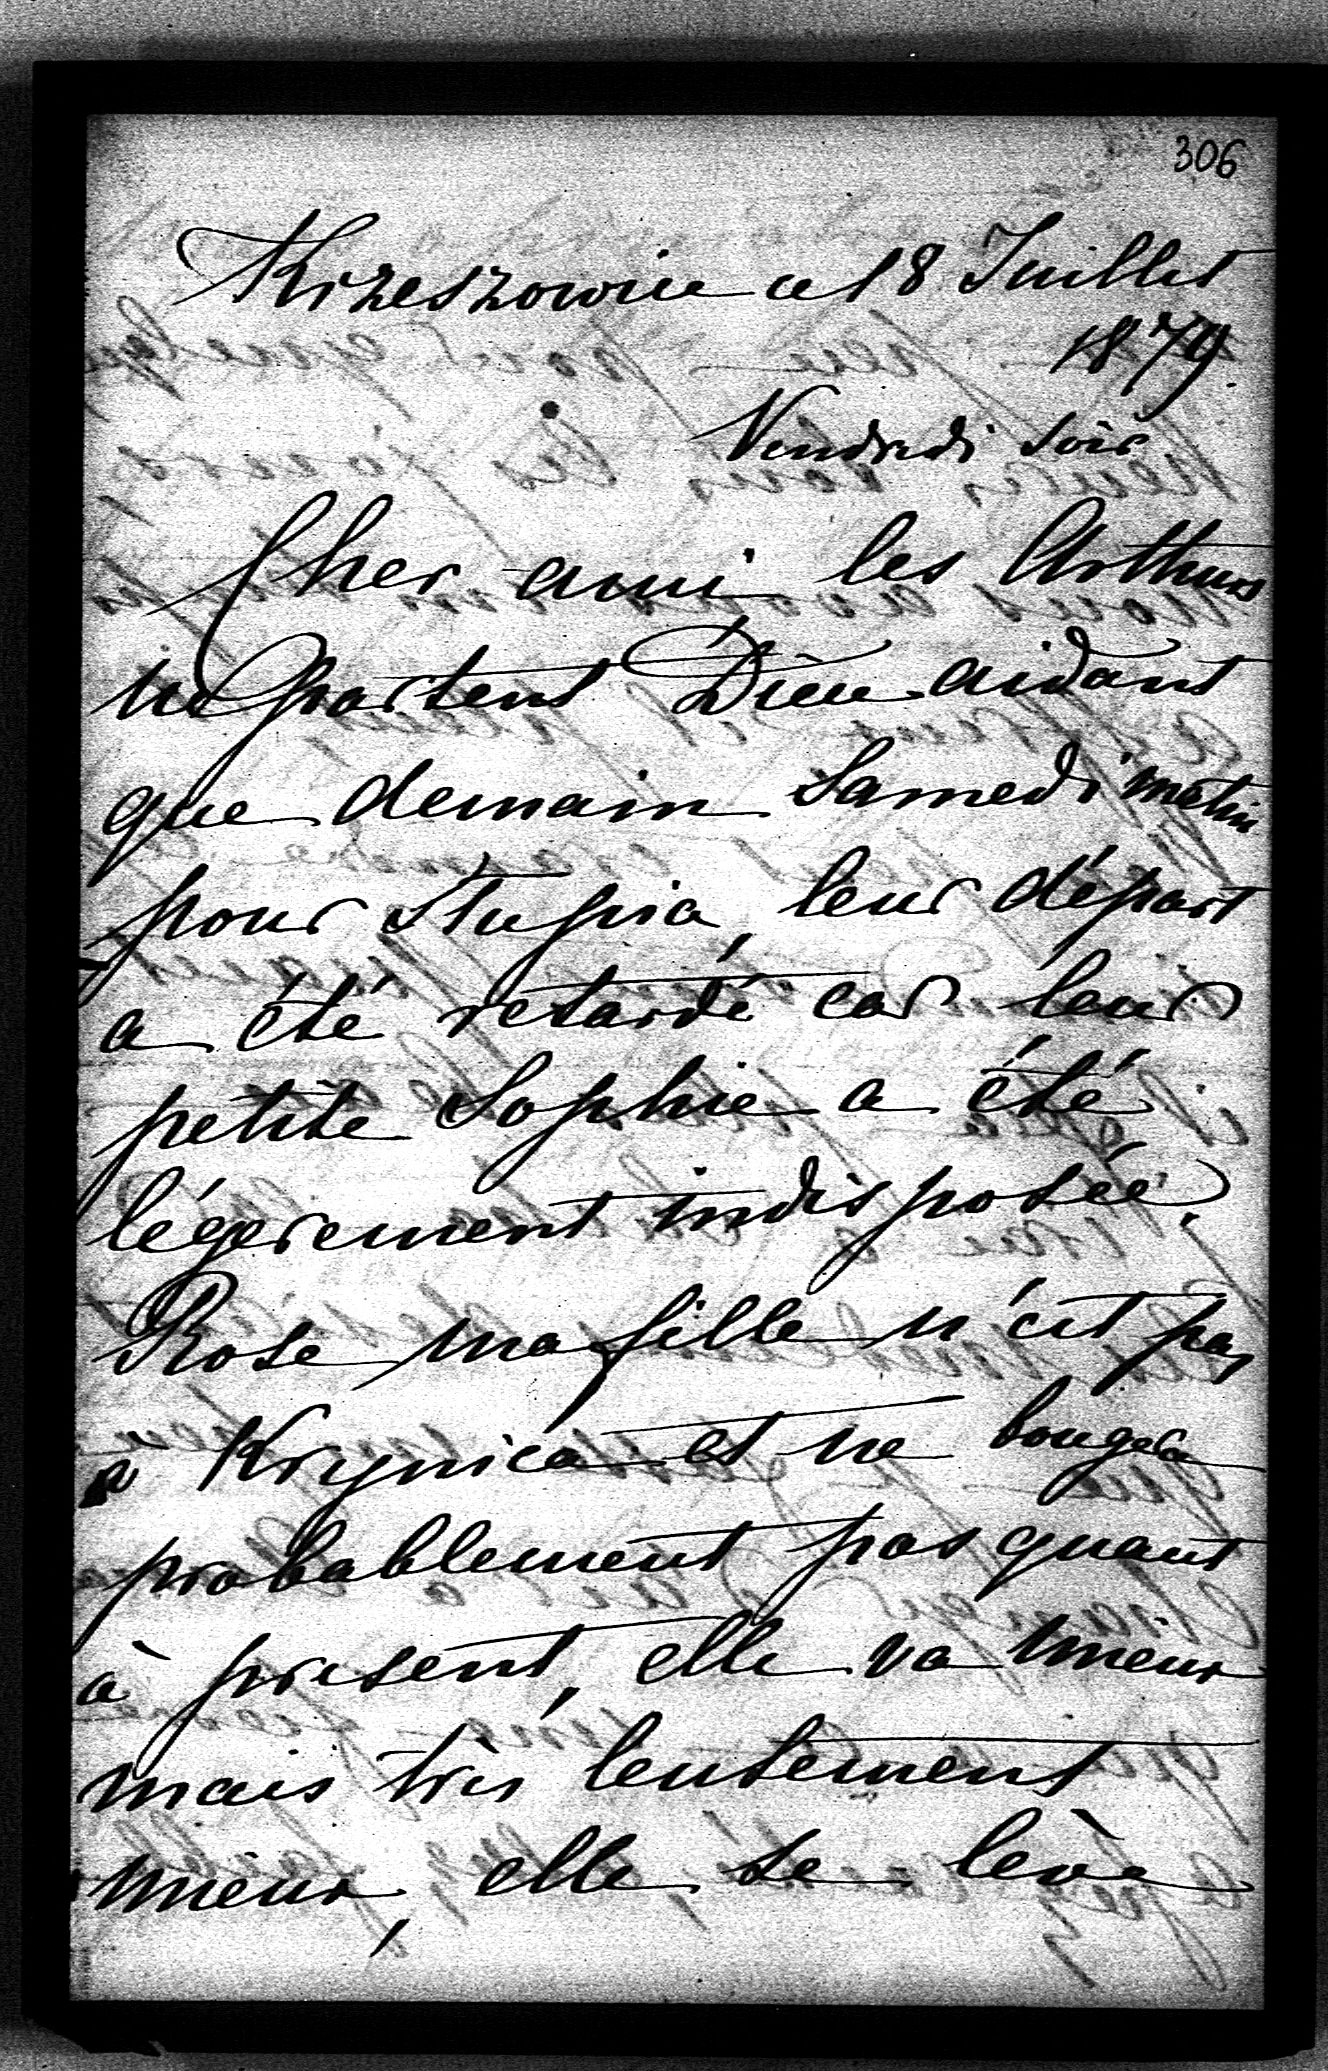 306
Krzeszowice ce 18 Juillet
1879.
Vendredi soir
Cher ami, les Arthurs
ne partent Dieu aidant
que demain Samedi matin
pour Stupia, leur départ
a été retardé car leur
petite Sophie a été
légerement indisposée.
Rose ma fille n'est pas
à Krynica et ne bougera
probablement pas quant
à present, elle va mieux
mais très lentement
mieux, elle se lève